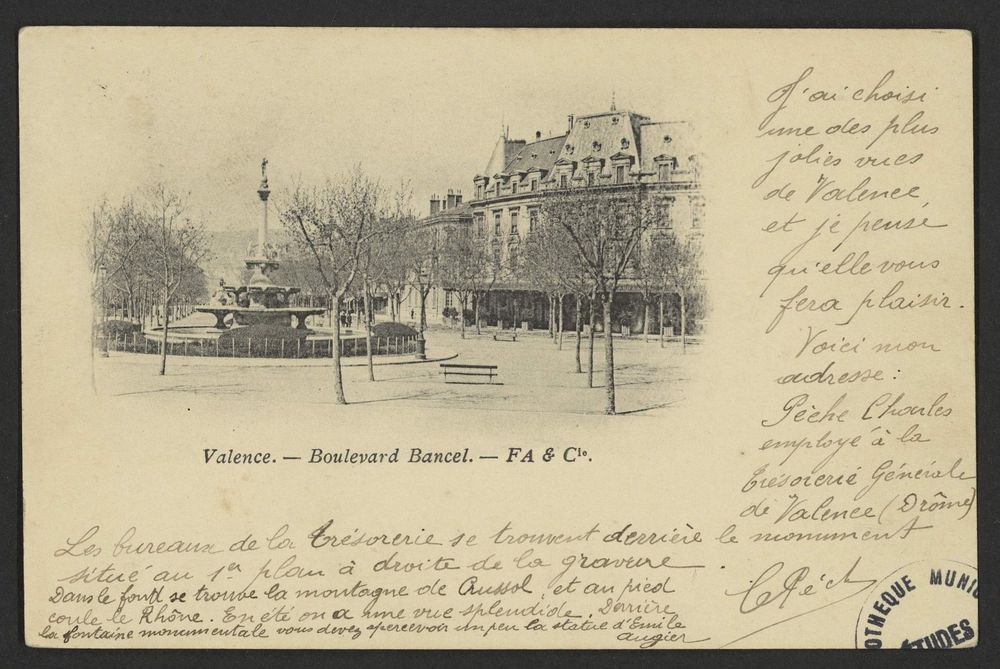 J'ai choisi
une des plus
jolies vues
de Valence
et je pense
qu'elle vous
fera plaisir.
Voici mon
adresse:
Pèche Charles
employé à la
trésorerie Générale
de Valence (Drôme)
Valence. — Boulevard Bancel. — FA & Cie.
Les bureaux de la trésorerie se trouvent derrière le monument
situé au 1er plan à droite de la gravure.
Dans le fond se trouve la montagne de Crussol, et au pied
coule le Rhône. En été on a une vue splendide. Derrière
la fontaine monumentale vous devez apercevoir un peu la statue d'Emile
augier
OTHEQUE MUNIC
ÉTUDES